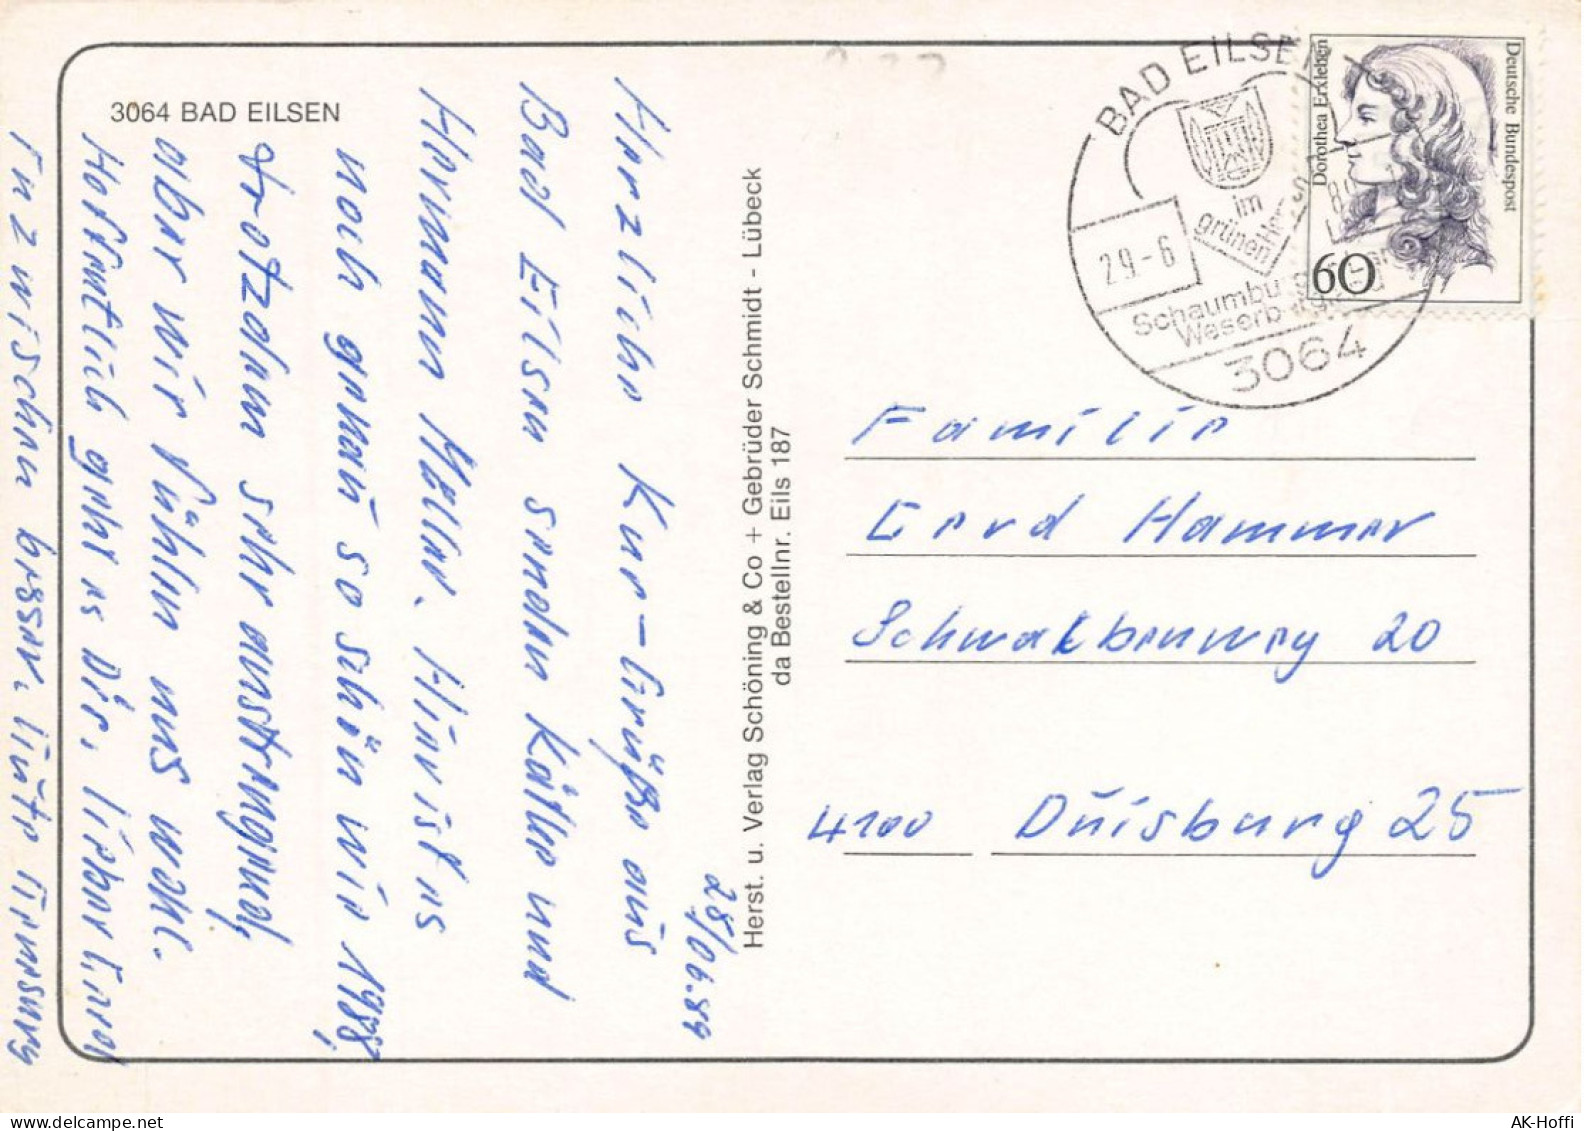 3064 BAD EILSEN
28/06.89
Herzliche Kur-Grüße aus
Bad Eilsen senden Käthe und
Hermann Möller. Hier ist es
noch genau so schön wie 1988,
trotzdem sehr anstrengend,
aber wir fühlen uns wohl.
Hoffentlich geht es Dir, lieber Gerd
inzwischen besser. Gute Genesung
Herst. u. Verlag Schöning & Co + Gebrüder Schmidt - Lübeck
da Bestellnr. Eils 187
BAD EILSEN
im
grünen Her
29.-6
Schaumburg
Weserb
3064
Deutsche Bundespost
Dorothea Erxleben
60
Familie
Gerd Hammer
Schwalbenweg 20
4100 Duisburg 25
AK-Hoffi